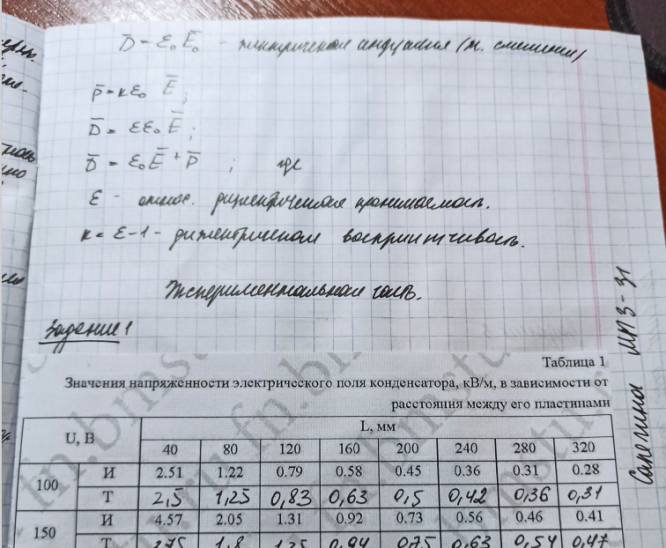 D̄ = ε₀ Ē₀ - электрическая индукция (эл. смещение)
P̄ = κε₀ Ē;
D̄ = εε₀ Ē;
D̄ = ε₀Ē + P̄ ; где
ε - относ. диэлектрическая проницаемость.
κ = ε-1 - диэлектрическая восприимчивость.
Экспериментальная часть.
Задание 1
Таблица 1
Значения напряженности электрического поля конденсатора, кВ/м, в зависимости от
расстояния между его пластинами
U, В L, мм
40 80 120 160 200 240 280 320
100 И 2.51 1.22 0.79 0.58 0.45 0.36 0.31 0.28
Т 2,5 1,25 0,83 0,63 0,5 0,42 0,36 0,31
150 И 4.57 2.05 1.31 0.92 0.73 0.56 0.46 0.41
Т 1,8 1,25 0,94 0,75 0,63 0,54 0,47
МПЗ-31